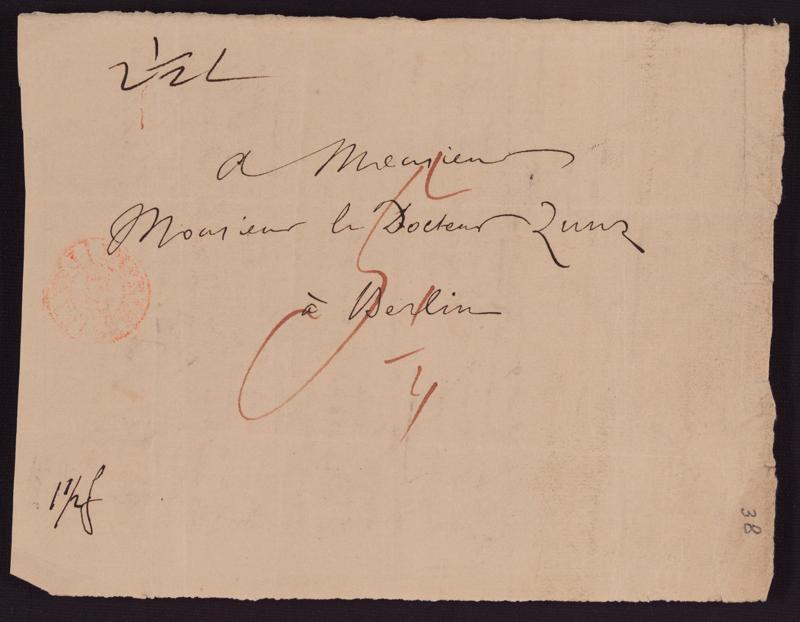 2½ L
a Monsieur
Monsieur le Docteur Zunz
à Berlin
1½ f
38